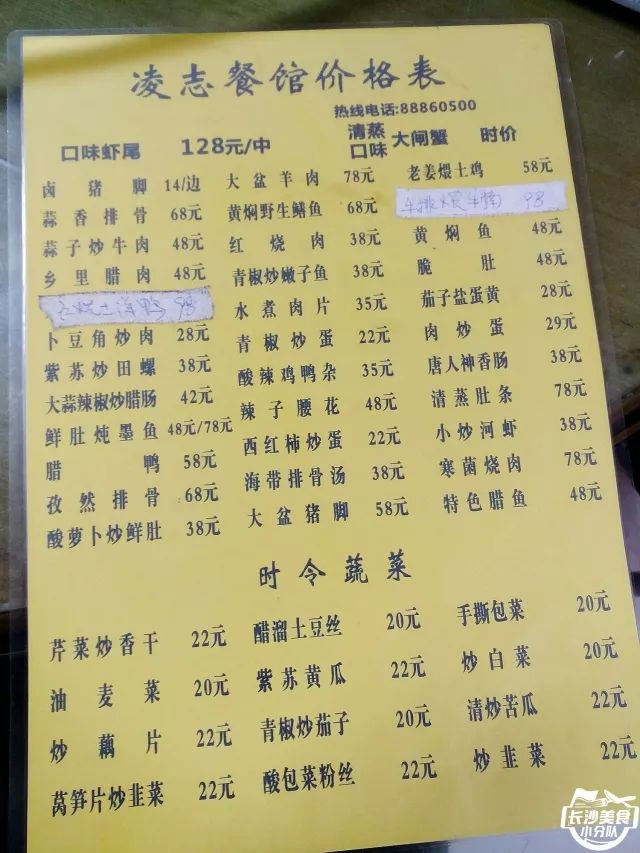 凌志餐馆价格表
热线电话:88860500
口味虾尾 128元/中 清蒸口味 大闸蟹 时价
卤猪脚 14/边 大盆羊肉 78元 老姜煨土鸡 58元
蒜香排骨 68元 黄焖野生鳝鱼 68元 牛排煨牛腩 98
蒜子炒牛肉 48元 红烧肉 38元 黄焖鱼 48元
乡里腊肉 48元 青椒炒嫩子鱼 38元 脆肚 48元
98 水煮肉片 35元 茄子盐蛋黄 28元
卜豆角炒肉 28元 青椒炒蛋 22元 肉炒蛋 29元
紫苏炒田螺 38元 酸辣鸡鸭杂 35元 唐人神香肠 38元
大蒜辣椒炒腊肠 42元 辣子腰花 48元 清蒸肚条 78元
鲜肚炖墨鱼 48元/78元 西红柿炒蛋 22元 小炒河虾 38元
腊鸭 58元 海带排骨汤 38元 寒菌烧肉 78元
孜然排骨 68元 大盆猪脚 58元 特色腊鱼 48元
酸萝卜炒鲜肚 38元
时令蔬菜
芹菜炒香干 22元 醋溜土豆丝 20元 手撕包菜 20元
油麦菜 20元 紫苏黄瓜 22元 炒白菜 20元
炒藕片 22元 青椒炒茄子 20元 清炒苦瓜 22元
莴笋片炒韭菜 22元 酸包菜粉丝 22元 炒韭菜 22元
长沙美食
小分队